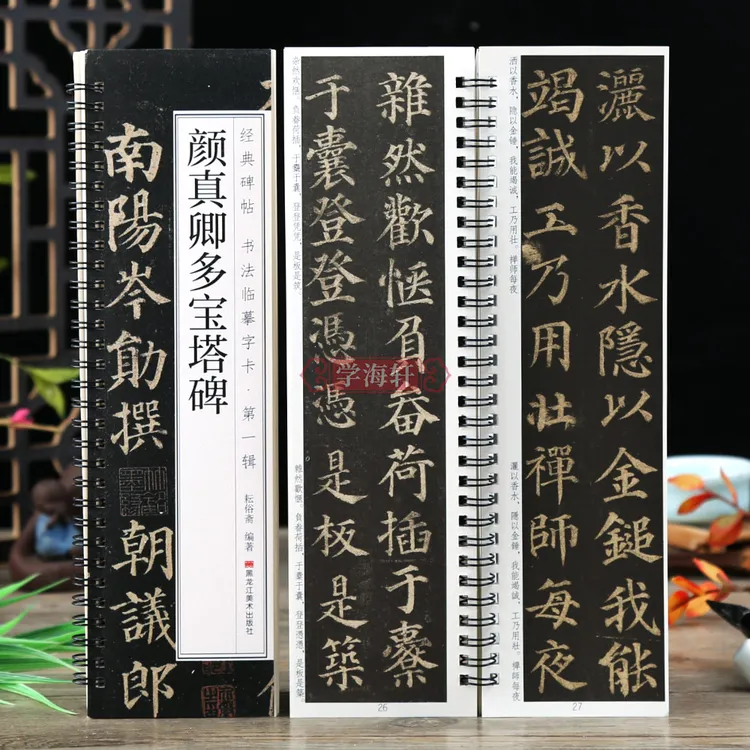 南陽岑勛撰
朝議郎
经典碑帖 书法临摹字卡·第一辑
颜真卿多宝塔碑
耘俗斋 编著
黑龙江美术出版社
雜然歡愜負畚荷插于橐
于囊登登憑憑是板是築
杂然欢惬,负畚荷插,于橐于囊,登登凭凭,是板是筑
雜然歡愜。負畚荷插,于橐于囊,登登憑憑,是板是築。
26
灑以香水隱以金鎚我能
竭誠工乃用壯禪師每夜
洒以香水,隐以金锤,我能竭诚,工乃用壮。禅师每夜
灑以香水,隱以金鎚,我能竭誠,工乃用壯。禪師每夜
27
学海轩